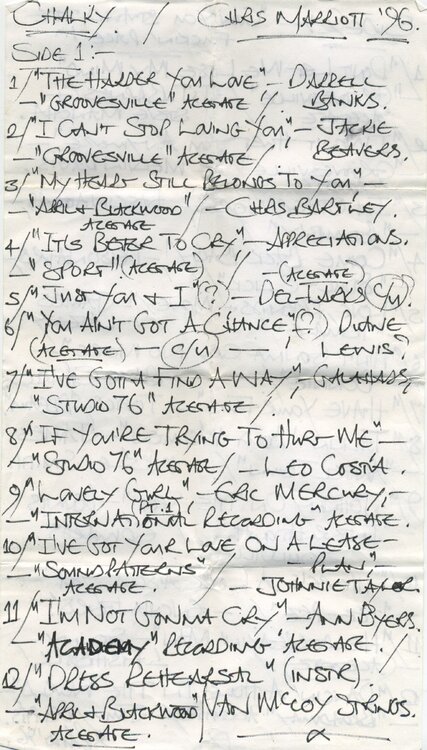 CHALKY / CHRIS MARRIOTT '96.
SIDE 1:-
1/ "THE HARDER YOU LOVE" - DARRELL
- "GROOVESVILLE" ACETATE / BANKS.
2/ "I CAN'T STOP LOVING YOU", - JACKIE
- "GROOVESVILLE" ACETATE / BEAVERS.
3/ "MY HEART STILL BELONGS TO YOU" -
- "APRIL & BLACKWOOD" / - CHRIS BARTLEY.
ACETATE
4/ "IT'S BETTER TO CRY" - APPRECIATIONS.
- "SPORT" (ACETATE) / - (ACETATE)
5/ "JUST YOU & I" (?) - DEL-LARKS (C/U)
6/ "YOU AIN'T GOT A CHANCE" (?) DUANE
(ACETATE) - (C/U) - LEWIS?
7/ "I'VE GOTTA FIND A WAY" - GALAHADS,
- "STUDIO 76" ACETATE /
8/ "IF YOU'RE TRYING TO HURT ME" -
- "STUDIO 76" ACETATE / - LEO COSTA.
9/ "LONELY GIRL" - ERIC MERCURY, -
(PT. 1)
- "INTERNATIONAL RECORDING" ACETATE.
10/ "I'VE GOT YOUR LOVE ON A LEASE -
- "SOUND PATTERNS" / - PLAN",
ACETATE. - JOHNNIE TAYLOR
11/ "I'M NOT GONNA CRY" - ANN BYERS.
- "ACADEMY" RECORDING ACETATE. /
12/ "DRESS REHEARSAL" (INSTR).
- "APRIL & BLACKWOOD" / VAN MCCOY STRINGS.
ACETATE.